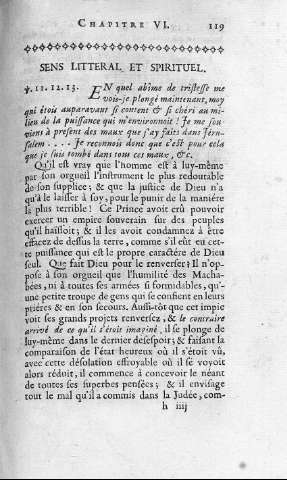 CHAPITRE VI. 119
SENS LITTERAL ET SPIRITUEL.
℣. 11. 12. 13. EN quel abîme de tristesse me
vois-je plongé maintenant, moy
qui étois auparavant si content & si chéri au mi-
lieu de la puissance qui m'environnoit! Je me sou-
viens à present des maux que j'ay faits dans Jéru-
salem . . . . Je reconnois donc que c'est pour cela
que je suis tombé dans tous ces maux, & c.
Qu'il est vray que l'homme est à luy-même
par son orgueil l'instrument le plus redoutable
de son supplice; & que la justice de Dieu n'a
qu'à le laisser à soy, pour le punir de la maniére
la plus terrible! Ce Prince avoit crû pouvoir
exercer un empire souverain sur des peuples
qu'il haïssoit; & il les avoit condamnez à être
effacez de dessus la terre, comme s'il eût eu cet-
te puissance qui est le propre caractére de Dieu
seul. Que fait Dieu pour le renverser? Il n'op-
pose à son orgueil que l'humilité des Macha-
bées, ni à toutes ses armées si formidables, qu'u-
ne petite troupe de gens qui se confient en leurs
priéres & en son secours. Aussi-tôt que cet impie
voit ses grands projets renversez, & le contraire
arrivé de ce qu'il s'étoit imaginé, il se plonge de
luy-même dans le dernier désespoir; & faisant la
comparaison de l'état heureux où il s'étoit vû,
avec cette désolation effroyable où il se voyoit
alors réduit, il commence à concevoir le néant
de toutes ses superbes pensées; & il envisage
tout le mal qu'il a commis dans la Judée, com-
h iiij